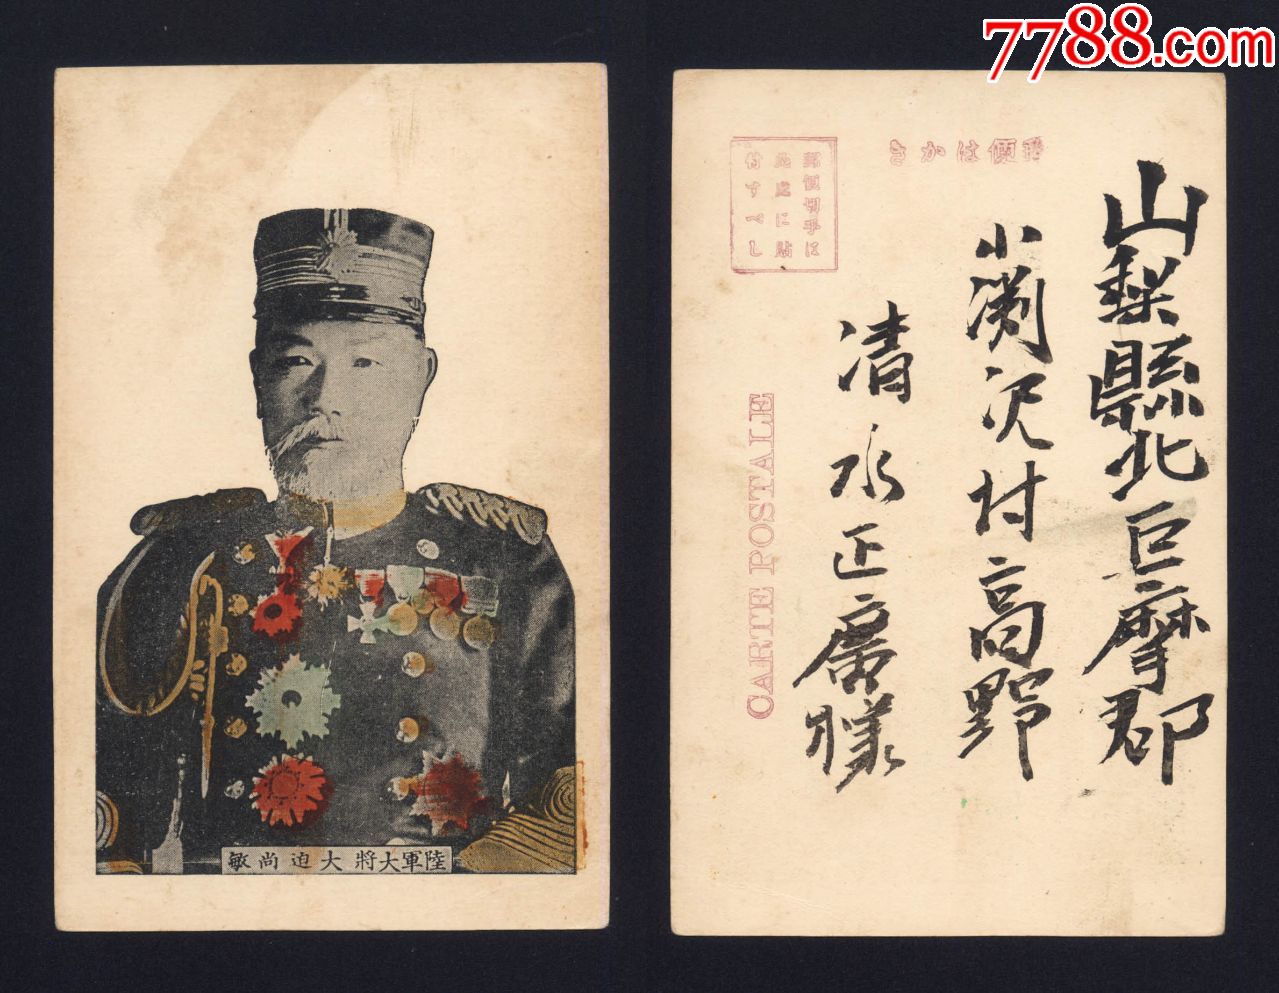 7788.com
陸軍大將 大迫尚敏
郵便はかき
郵便切手に
此處に貼
付すべし
CARTE POSTALE
山梨縣北巨摩郡
小渕沢村高野
清水正
様